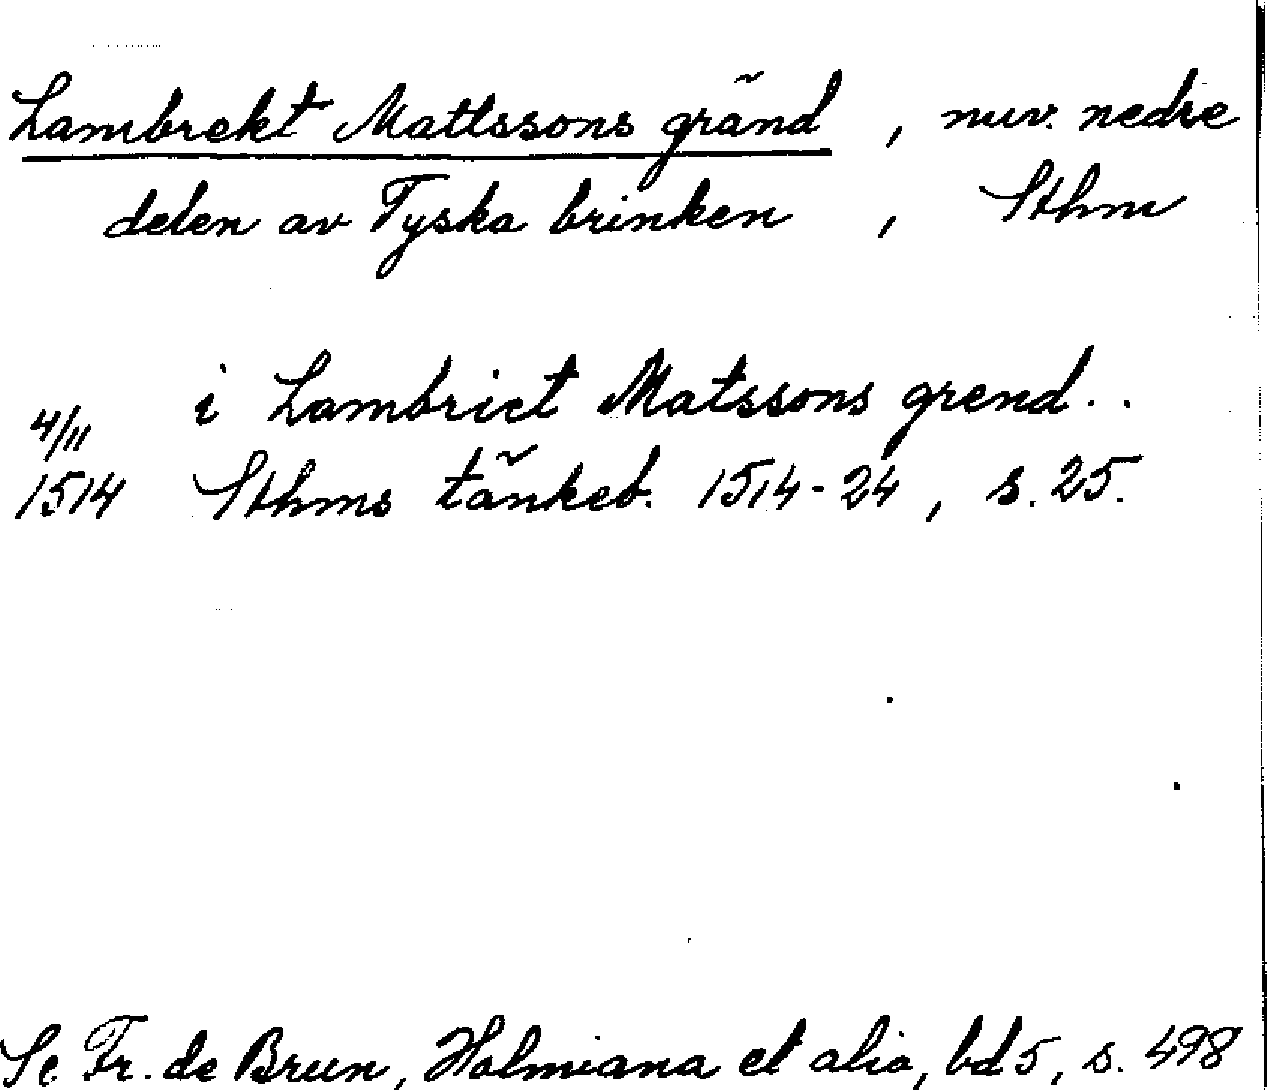 Lambrekt Mattssons gränd, nuv. nedre
delen av Tyska brinken, Sthm
i Lambrict Matssons grend..
4/11
1514 Sthms tänkeb. 1514-24, s. 25.
Se Fr. de Brun, Holmiana et alia, bd 5, s. 498